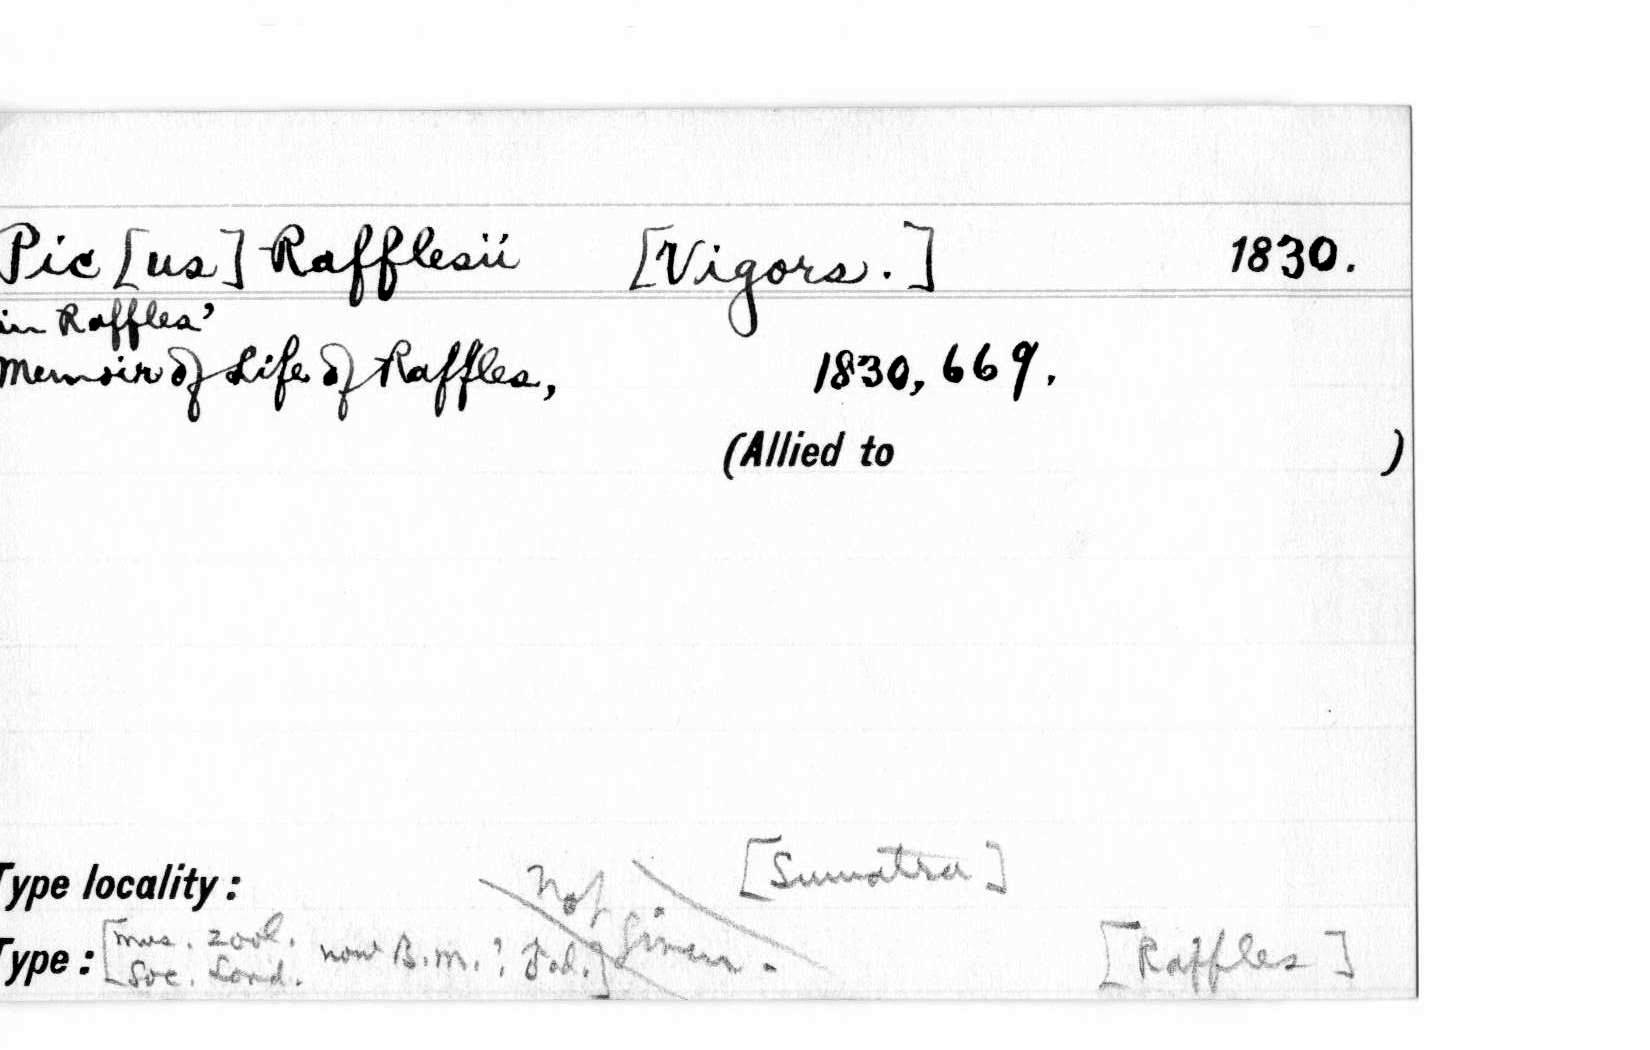 Pic [us] Rafflesii [Vigors.] 1830.
in Raffles'
Memoir of Life of Raffles, 1830, 669.
(Allied to )
Type locality: Not Given. [Sumatra]
Type: [Mus. Zool. Soc. Lond. now B.M.? ] [Raffles]